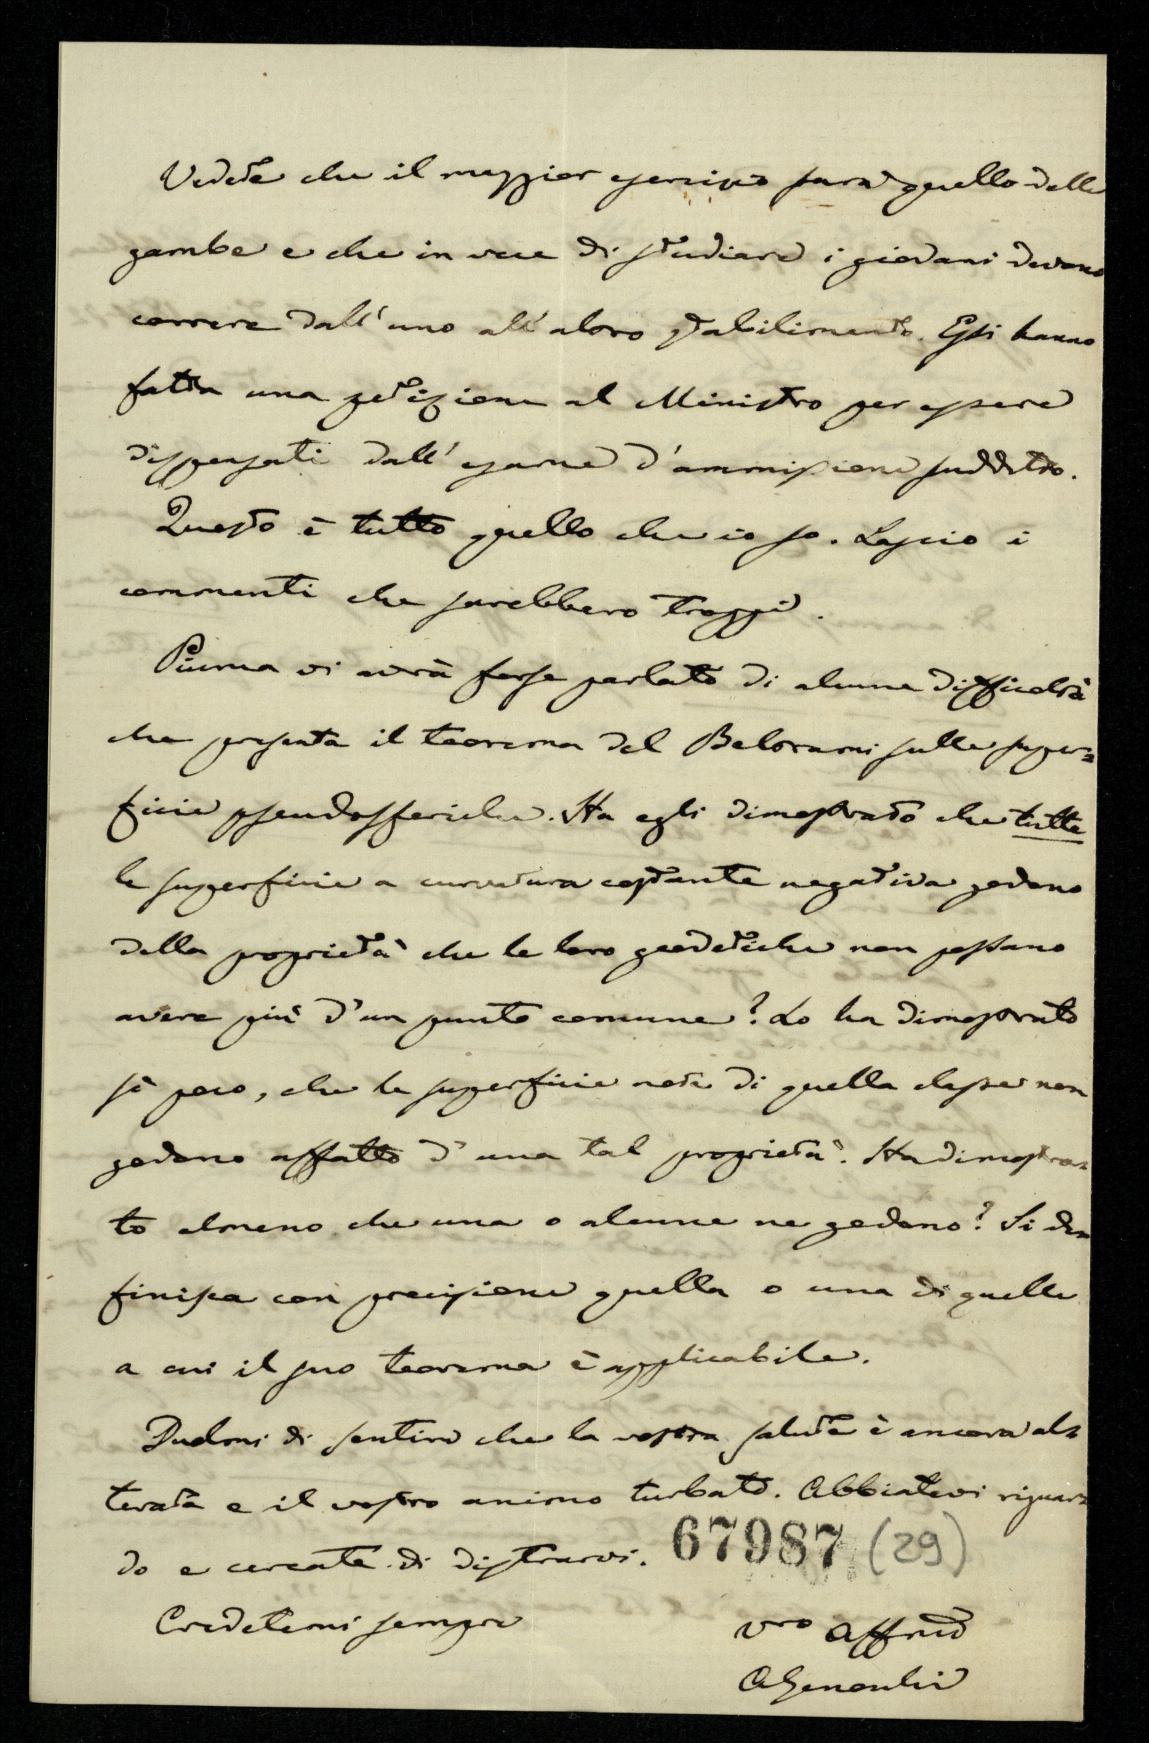 Vedete che il maggior esercizio sarà quello delle
gambe e che in vece di studiare i giovani devono
correre dall'uno all'altro stabilimento. Essi hanno
fatta una petizione al Ministro per essere
dispensati dall'esame d'ammissione suddetto.
Questo è tutto quello che io so. Lascio i
commenti che sarebbero troppi.
Piuma vi avrà forse parlato di alcune difficoltà
che presenta il teorema del Beltrami sulle super=
ficie pseudosferiche. Ha egli dimostrato che tutte
le superficie a curvatura costante negativa godono
della proprietà che le loro geodetiche non possano
avere più d'un punto comune? Lo ha dimostrato
sì poco, che le superficie note di quella classe non
godono affatto d'una tal proprietà. Ha dimostra=
to almeno che una o alcune ne godono? Si de=
finisca con precisione quella o una di quelle
a cui il suo teorema è applicabile.
Duolmi di sentire che la vostra salute è ancora al=
terata e il vostro animo turbato. Abbiatevi riguar=
do e cercate di distrarvi. 67987 (29)
Credetemi sempre
Vro affmo
A Genocchi